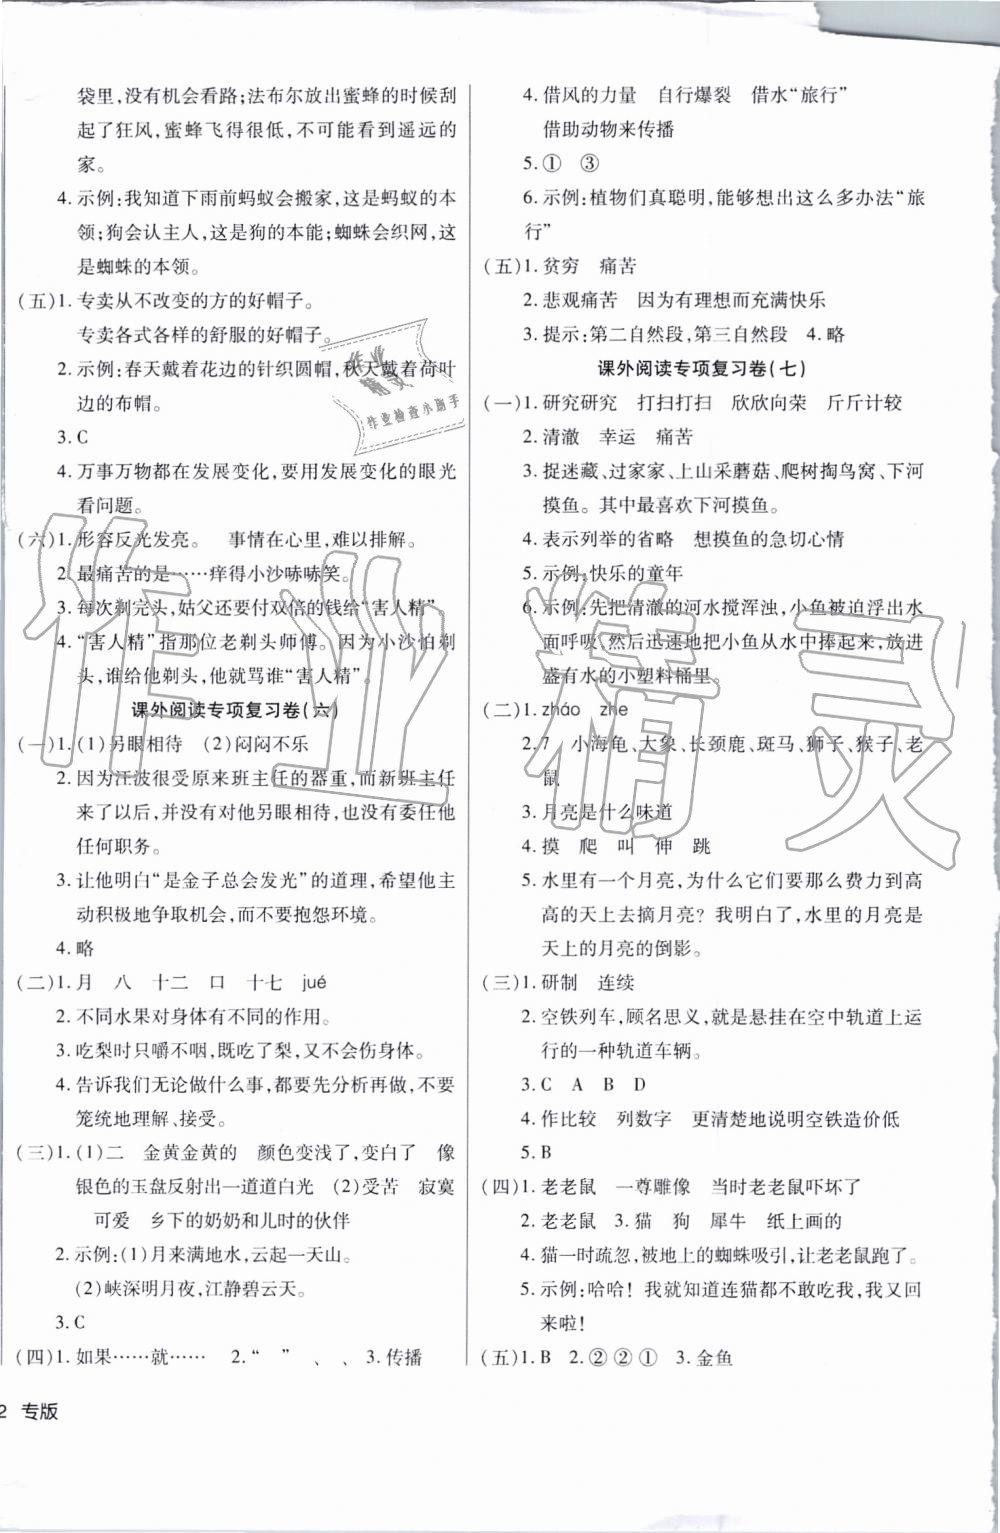 袋里,没有机会看路;法布尔放出蜜蜂的时候刮
起了狂风,蜜蜂飞得很低,不可能看到遥远的
家。
4. 示例:我知道下雨前蚂蚁会搬家,这是蚂蚁的本
领;狗会认主人,这是狗的本能;蜘蛛会织网,这
是蜘蛛的本领。
(五)1. 专卖从不改变的方的好帽子。
专卖各式各样的舒服的好帽子。
2. 示例:春天戴着花边的针织圆帽,秋天戴着荷叶
边的布帽。
3. C
4. 万事万物都在发展变化,要用发展变化的眼光
看问题。
(六)1. 形容反光发亮。 事情在心里,难以排解。
2. 最痛苦的是……痒得小沙哧哧笑。
3. 每次剃完头,姑父还要付双倍的钱给“害人精”。
4. “害人精”指那位老剃头师傅。因为小沙怕剃
头,谁给他剃头,他就骂谁“害人精”。
课外阅读专项复习卷(六)
(一)1. (1)另眼相待 (2)闷闷不乐
2. 因为汪波很受原来班主任的器重,而新班主任
来了以后,并没有对他另眼相待,也没有让他
任何职务。
3. 让他明白“是金子总会发光”的道理,希望他主
动积极地争取机会,而不要抱怨环境。
4. 略
(二)1. 月 八 十二 口 十七 jué
2. 不同水果对身体有不同的作用。
3. 吃梨时只嚼不咽,既吃了梨,又不会伤身体。
4. 告诉我们无论做什么事,都要先分析再做,不要
笼统地理解、接受。
(三)1. (1)二 金黄金黄的 颜色变浅了,变白了 像
银色的玉盘反射出一道道白光 (2)受苦 寂寞
可爱 乡下的奶奶和儿时的伙伴
2. 示例:(1)月来满地水,云起一天山。
(2)峡深明月夜,江静碧云天。
3. C
(四)1. 如果……就…… 2. “ ” 、 、 3. 传播
2 专版
4. 借风的力量 自行爆裂 借水“旅行”
借助动物来传播
5. ① ③
6. 示例:植物们真聪明,能够想出这么多办法“旅
行”
(五)1. 贫穷 痛苦
2. 悲观痛苦 因为有理想而充满快乐
3. 提示:第二自然段,第三自然段 4. 略
课外阅读专项复习卷(七)
(一)1. 研究研究 打扫打扫 欣欣向荣 斤斤计较
2. 清澈 幸运 痛苦
3. 捉迷藏、过家家、上山采蘑菇、爬树掏鸟窝、下河
摸鱼。其中最喜欢下河摸鱼。
4. 表示列举的省略 想摸鱼的急切心情
5. 示例:快乐的童年
6. 示例:先把清澈的河水搅浑浊,小鱼被迫浮出水
面呼吸,然后迅速地把小鱼从水中捧起来,放进
盛有水的小塑料桶里。
(二)1. zháo zhe
2. 7 小海龟、大象、长颈鹿、斑马、狮子、猴子、老
鼠
3. 月亮是什么味道
4. 摸 爬 叫 伸 跳
5. 水里有一个月亮,为什么它们要那么费力到高
高的天上去摘月亮? 我明白了,水里的月亮是
天上的月亮的倒影。
(三)1. 研制 连续
2. 空铁列车,顾名思义,就是悬挂在空中轨道上运
行的一种轨道车辆。
3. C A B D
4. 作比较 列数字 更清楚地说明空铁造价低
5. B
(四)1. 老老鼠 一尊雕像 当时老老鼠吓坏了
2. 老老鼠 3. 猫 狗 犀牛 纸上画的
4. 猫一时疏忽,被地上的蜘蛛吸引,让老老鼠跑了。
5. 示例:哈哈! 我就知道连猫都不敢吃我,我又回
来啦!
(五)1. B 2. ② ② ① 3. 金鱼
作业精灵
作业检查小助手
作业精灵